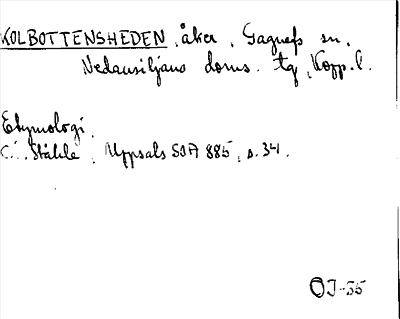 KOLBOTTENSHEDEN, åker, Gagnefs sn,
Nedansiljans doms. tg, Kopp. l.
Etymologi.
C.I. Ståhle, Uppsala SOA 885, s. 34.
OJ-35